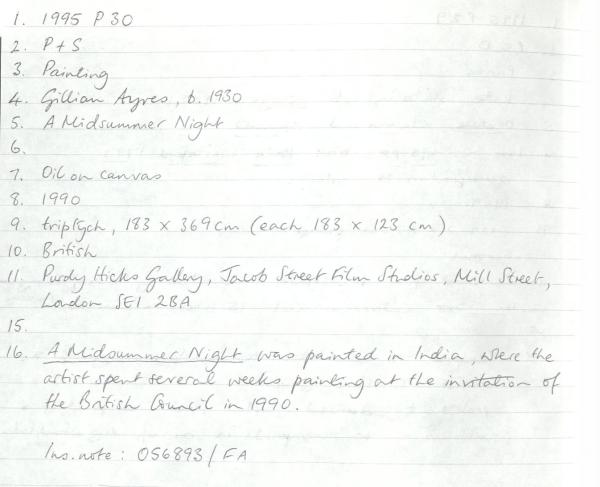 1. 1995 P 30
2. P + S
3. Painting
4. Gillian Ayres, b. 1930
5. A Midsummer Night
6.
7. Oil on canvas
8. 1990
9. triptych, 183 x 369 cm (each 183 x 123 cm)
10. British
11. Purdy Hicks Gallery, Jacob Street Film Studios, Mill Street,
London SE1 2BA
15.
16. A Midsummer Night was painted in India, where the
artist spent several weeks painting at the invitation of
the British Council in 1990.
Ins. note: OS6893/FA